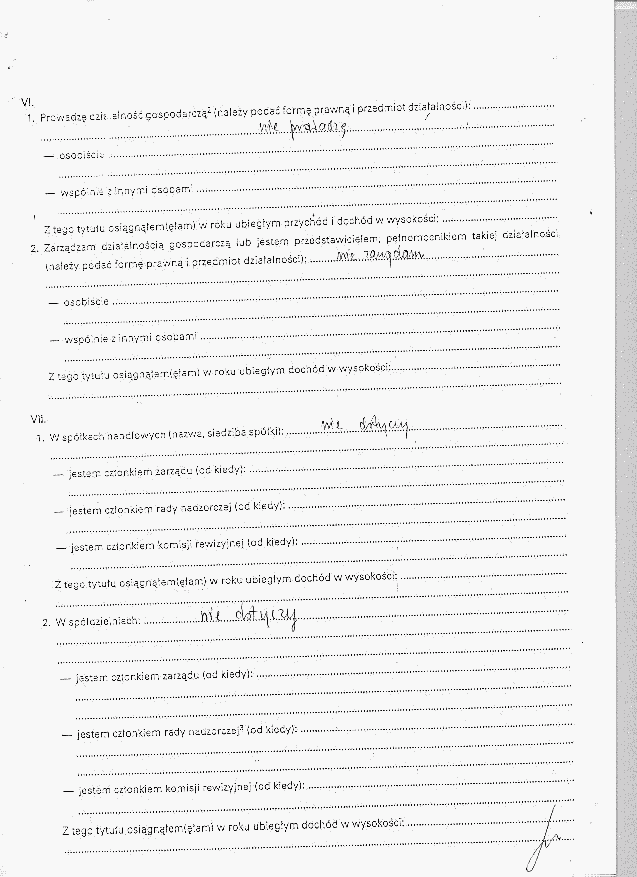 VI.
1. Prowadzę działalność gospodarczą² (należy podać formę prawną i przedmiot działalności): ....................
nie prowadzę
— osobiście ....................
— wspólnie z innymi osobami ....................
Z tego tytułu osiągnąłem(ęłam) w roku ubiegłym przychód i dochód w wysokości: ....................
2. Zarządzam działalnością gospodarczą lub jestem przedstawicielem, pełnomocnikiem takiej działalności
(należy podać formę prawną i przedmiot działalności): .......... nie zarządzam ..........
— osobiście ....................
— wspólnie z innymi osobami ....................
Z tego tytułu osiągnąłem(ęłam) w roku ubiegłym dochód w wysokości: ....................
VII.
1. W spółkach handlowych (nazwa, siedziba spółki): .......... nie dotyczy ..........
— jestem członkiem zarządu (od kiedy): ....................
— jestem członkiem rady nadzorczej (od kiedy): ....................
— jestem członkiem komisji rewizyjnej (od kiedy): ....................
Z tego tytułu osiągnąłem(ęłam) w roku ubiegłym dochód w wysokości: ....................
2. W spółdzielniach: .......... nie dotyczy ..........
— jestem członkiem zarządu (od kiedy): ....................
— jestem członkiem rady nadzorczej³ (od kiedy): ....................
— jestem członkiem komisji rewizyjnej (od kiedy): ....................
Z tego tytułu osiągnąłem(ęłam) w roku ubiegłym dochód w wysokości: ....................